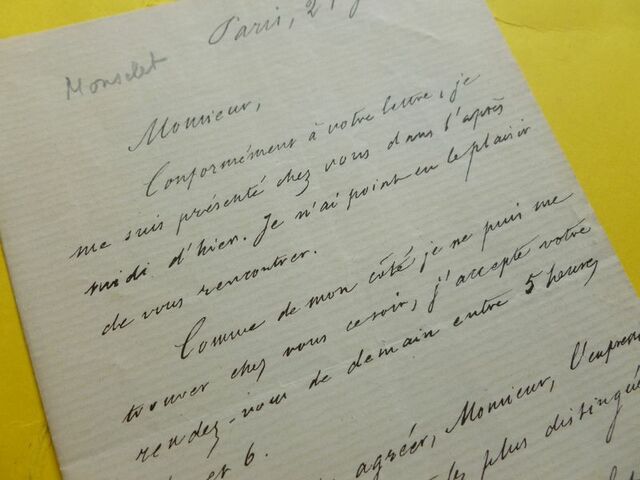 Paris, 2
Monselet
Monsieur,
Conformément à votre lettre, je
me suis présenté chez vous dans l'après
midi d'hier. Je n'ai point eu le plaisir
de vous rencontrer.
Comme de mon côté je ne puis me
trouver chez vous ce soir, j'accepte votre
rendez-vous de demain entre 5 heures
et 6.
agréer, Monsieur, l'expres
les plus distingué